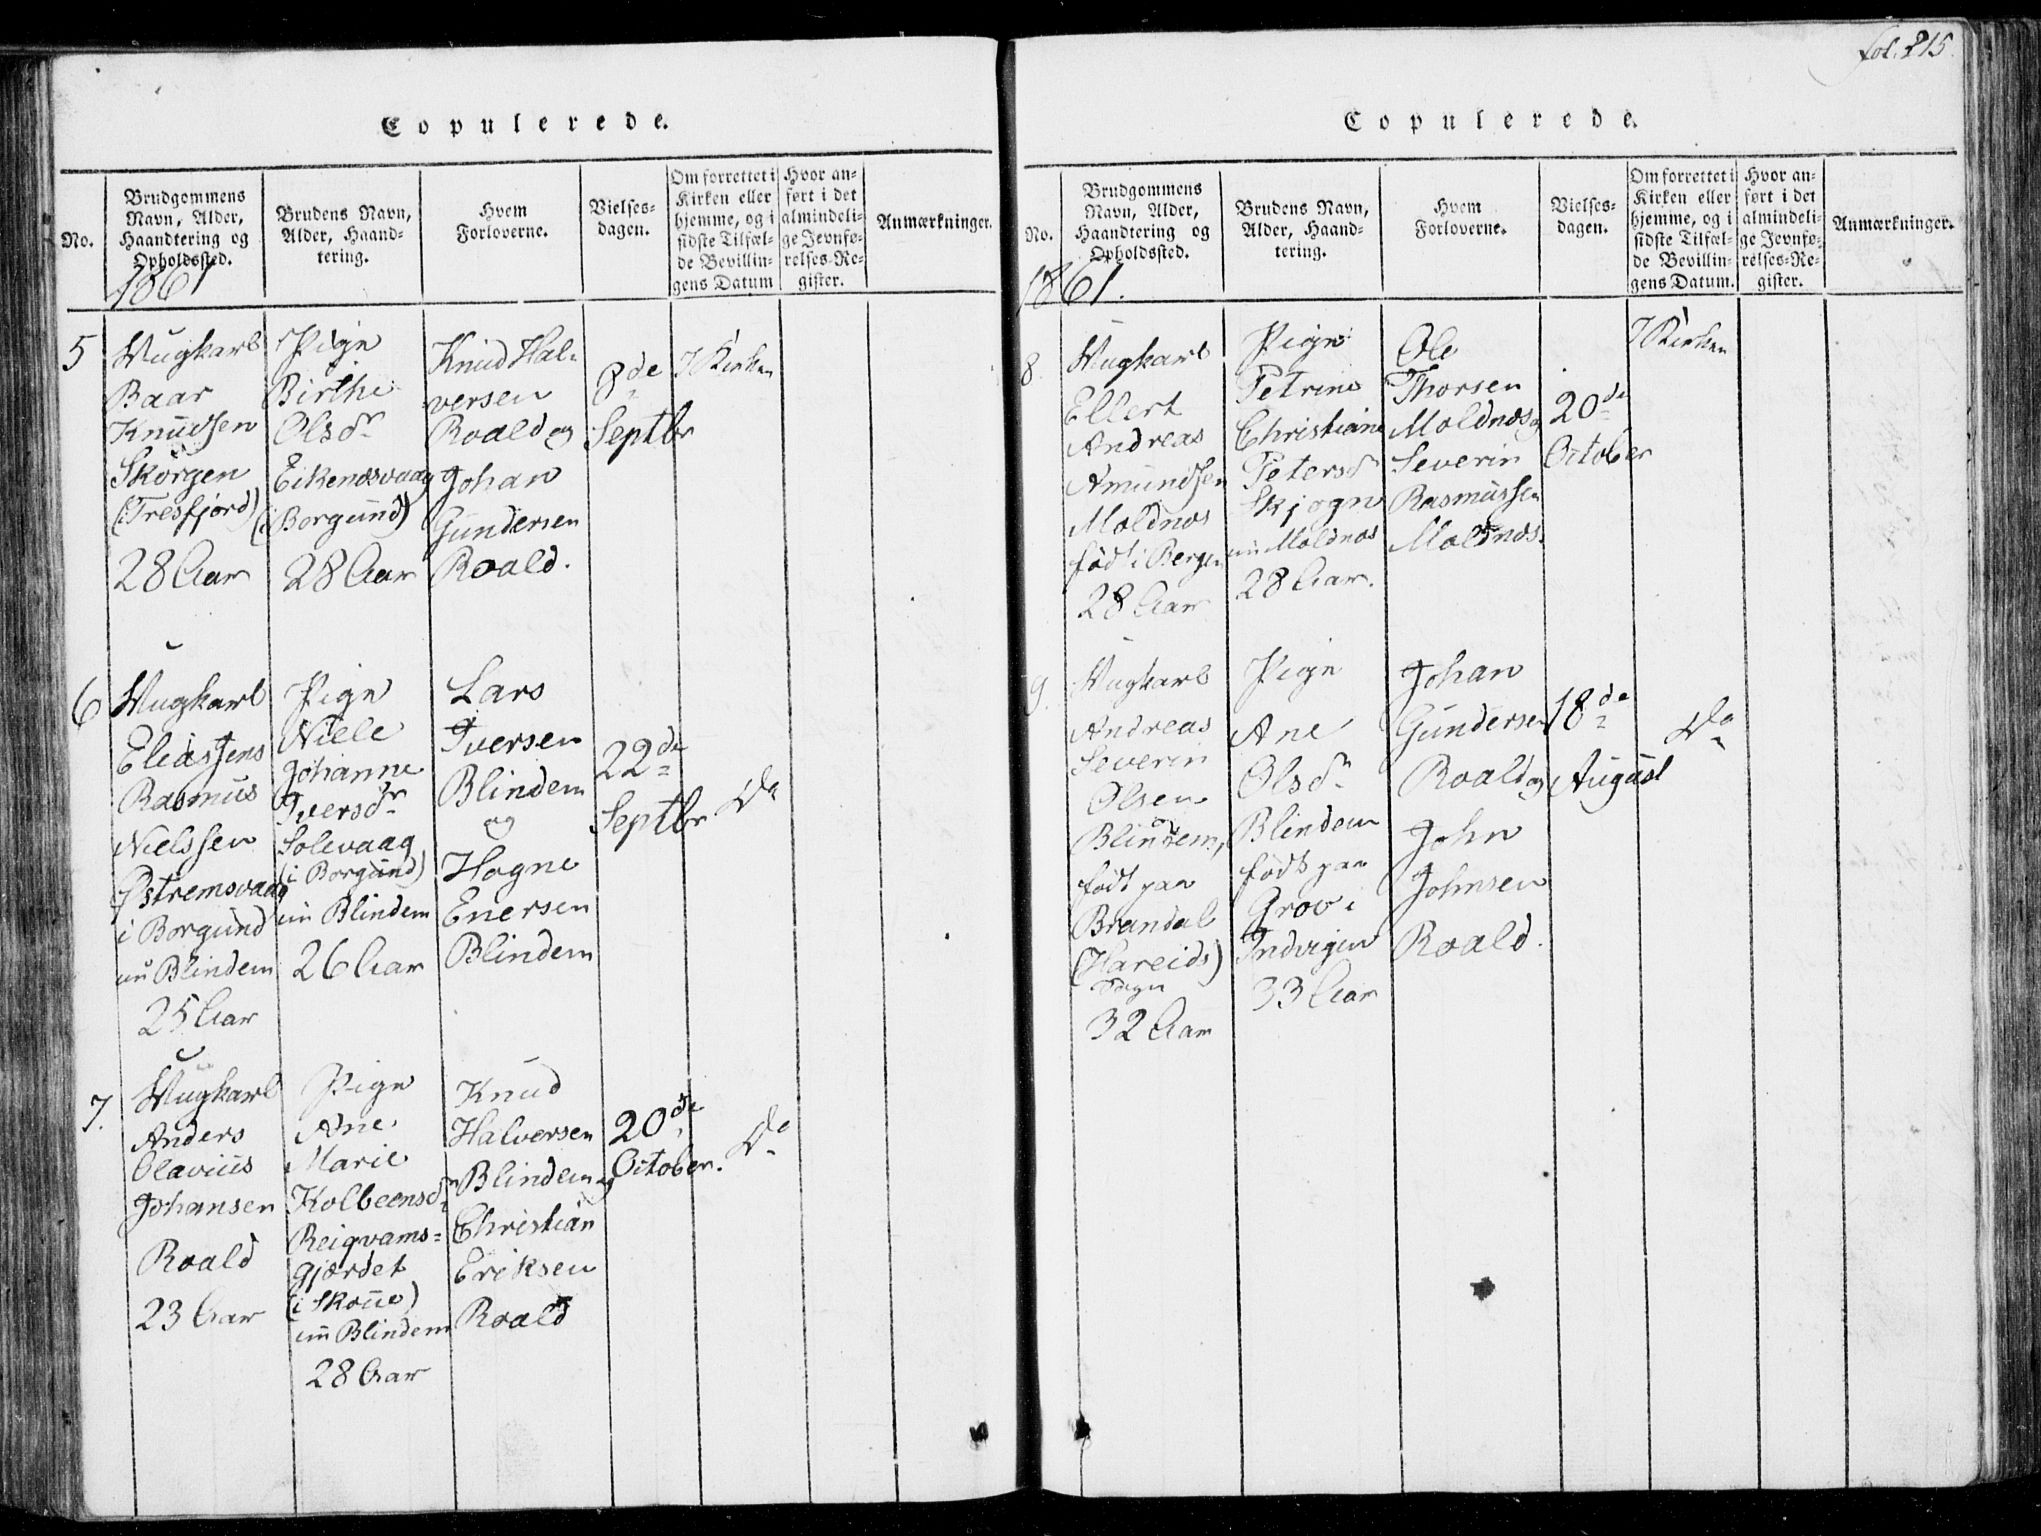 Copulerede.
No.
Brudgommens
Navn, Alder,
Haandtering og
Opholdssted.
Brudens Navn,
Alder, Haand-
tering.
Hvem
Forloverne.
Vielses-
dagen.
Om forrettet i
Kirken eller
hjemme, og i
sidste Tilfæl-
de Bevillin-
gens Datum
Hvor an-
ført i det
almindeli-
ge Jevnfø-
relses-Re-
gister.
Anmærkninger.
1861
5
Ungkarl
Baar
Knudsen
Skorgen
(i Tresfjord)
28 Aar
Pige
Birthe
Olsdr
Eikenosvaag
(i Borgund)
28 Aar
Knud Hal-
versen
Roald og
Johan
Gundersen
Roald.
8de
Septbr
I Kirken
6
Ungkarl
Elias Jens
Rasmus
Nielssen
Østremsvaag
i Borgund
nu Blindem
25 Aar
Pige
Niele
Johanne
Iversdr
Solevaag
(i Borgund)
nu Blindem
26 Aar
Lars
Iversen
Blindem
og
Hogne
Enersen
Blindem
22de
Septbr
Do
7.
Ungkarl
Anders
Olavius
Johansen
Roald
23 Aar
Pige
Ane
Marie
Kolbeensdr
Reiqvams-
gjærdet
(i Skoue)
nu Blindem
28 Aar
Knud
Halversen
Blindem og
Christian
Eriksen
Roald
20de
October.
Do
fol. 215
Copulerede.
No.
Brudgommens
Navn, Alder,
Haandtering og
Opholdssted.
Brudens Navn,
Alder, Haand-
tering.
Hvem
Forloverne.
Vielses-
dagen.
Om forrettet i
Kirken eller
hjemme, og i
sidste Tilfæl-
de Bevillin-
gens Datum.
Hvor an-
ført i det
almindeli-
ge Jevnfø-
relses-Re-
gister.
Anmærkninger.
1861.
8.
Ungkarl
Ellert
Andreas
Amundsen
Moldnæs
født i Bergen
28 Aar
Pige
Petrine
Christiane
Petersdr
Skjogne
nu Moldnæs
28 Aar.
Ole
Thorsen
Moldnæs og
Severin
Rasmussen
Moldnæs.
20de
October
I Kirken
9.
Ungkarl
Andreas
Severin
Olsen
Blindem,
født paa
Brandal
(Hareids)
Sogn
32 Aar
Pige
Ane
Olsdr
Blindem
født paa
Grov i
Indvigen
33 Aar
Johan
Gundersen
Roald og
John
Johnsen
Roald.
18de
August
Do